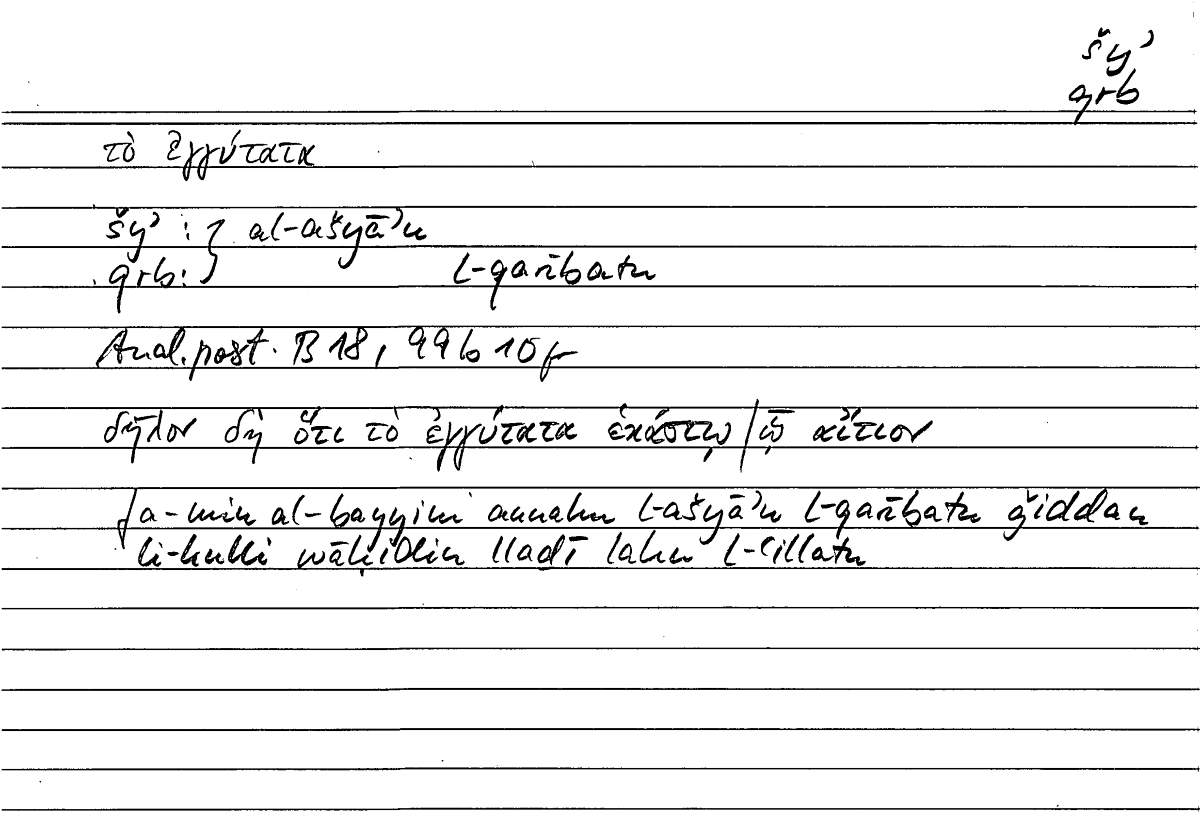 šyʾ
qrb
τὸ ἐγγύτατα
šyʾ : } al-ašyāʾu
qrb: } l-qarībatu
Anal. post. B 18, 99b 10 f
δῆλον δὴ ὅτι τὸ ἐγγύτατα ἑκάστῳ / ᾧ αἴτιον
fa-min al-bayyini annahu l-ašyāʾu l-qarībatu ǧiddan
li-kulli wāḥidin lladī lahu l-ʿillatu